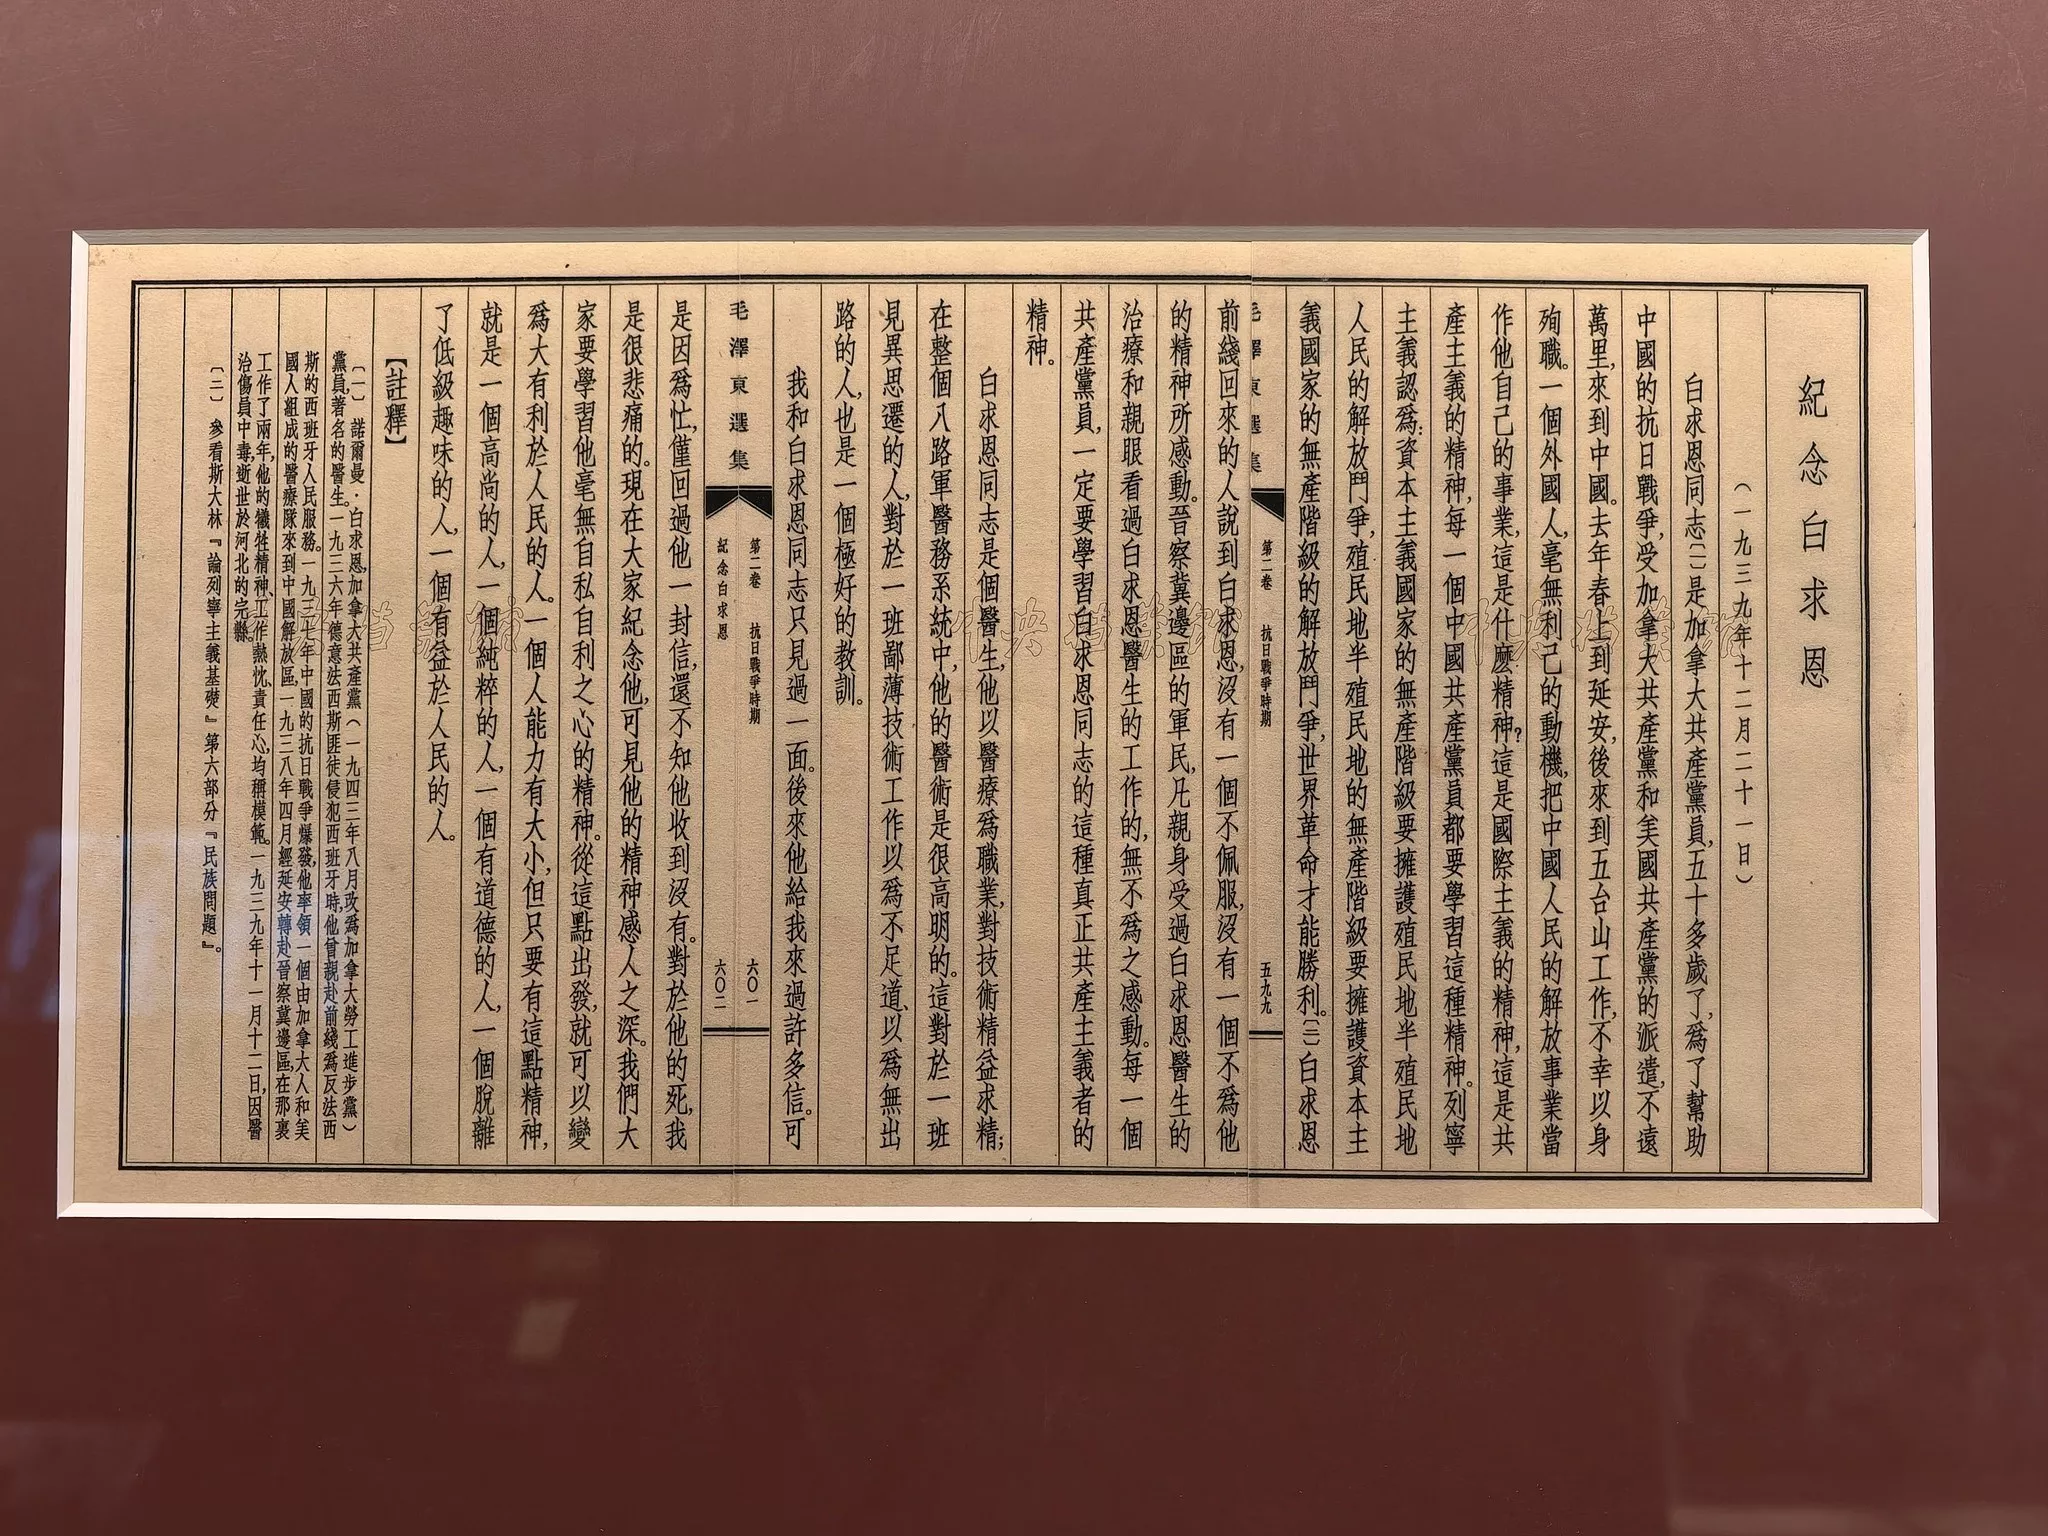 紀念白求恩
（一九三九年十二月二十一日）
白求恩同志〔一〕是加拿大共產黨員，五十多歲了，爲了幫助
中國的抗日戰爭，受加拿大共產黨和美國共產黨的派遣，不遠
萬里，來到中國。去年春上到延安，後來到五台山工作，不幸以身
殉職。一個外國人，毫無利己的動機，把中國人民的解放事業當
作他自己的事業，這是什麽精神？這是國際主義的精神，這是共
產主義的精神，每一個中國共產黨員都要學習這種精神。列寧
主義認爲：資本主義國家的無產階級要擁護殖民地半殖民地
人民的解放鬥爭，殖民地半殖民地的無產階級要擁護資本主
義國家的無產階級的解放鬥爭，世界革命才能勝利。〔二〕白求恩
毛澤東選集 第二卷 抗日戰爭時期 五九九
前綫回來的人說到白求恩，沒有一個不佩服，沒有一個不爲他
的精神所感動。晉察冀邊區的軍民，凡親身受過白求恩醫生的
治療和親眼看過白求恩醫生的工作的，無不爲之感動。每一個
共產黨員，一定要學習白求恩同志的這種真正共產主義者的
精神。
白求恩同志是個醫生，他以醫療爲職業，對技術精益求精；
在整個八路軍醫務系統中，他的醫術是很高明的。這對於一班
見異思遷的人，對於一班鄙薄技術工作以爲不足道、以爲無出
路的人，也是一個極好的教訓。
我和白求恩同志只見過一面。後來他給我來過許多信。可
毛澤東選集
第二卷 抗日戰爭時期 六〇一
紀念白求恩 六〇二
是因爲忙，僅回過他一封信，還不知他收到沒有。對於他的死，我
是很悲痛的。現在大家紀念他，可見他的精神感人之深。我們大
家要學習他毫無自私自利之心的精神。從這點出發，就可以變
爲大有利於人民的人。一個人能力有大小，但只要有這點精神，
就是一個高尚的人，一個純粹的人，一個有道德的人，一個脫離
了低級趣味的人，一個有益於人民的人。
【註釋】
〔一〕 諾爾曼·白求恩，加拿大共產黨（一九四三年八月改爲加拿大勞工進步黨）
黨員，著名的醫生。一九三六年德意法西斯匪徒侵犯西班牙時，他曾親赴前綫爲反法西
斯的西班牙人民服務。一九三七年中國的抗日戰爭爆發，他率領一個由加拿大人和美
國人組成的醫療隊來到中國解放區，一九三八年四月經延安轉赴晉察冀邊區，在那裏
工作了兩年，他的犧牲精神、工作熱忱、責任心，均稱模範。一九三九年十一月十二日，因醫
治傷員中毒，逝世於河北的完縣。
〔二〕 參看斯大林『論列寧主義基礎』第六部分『民族問題』。